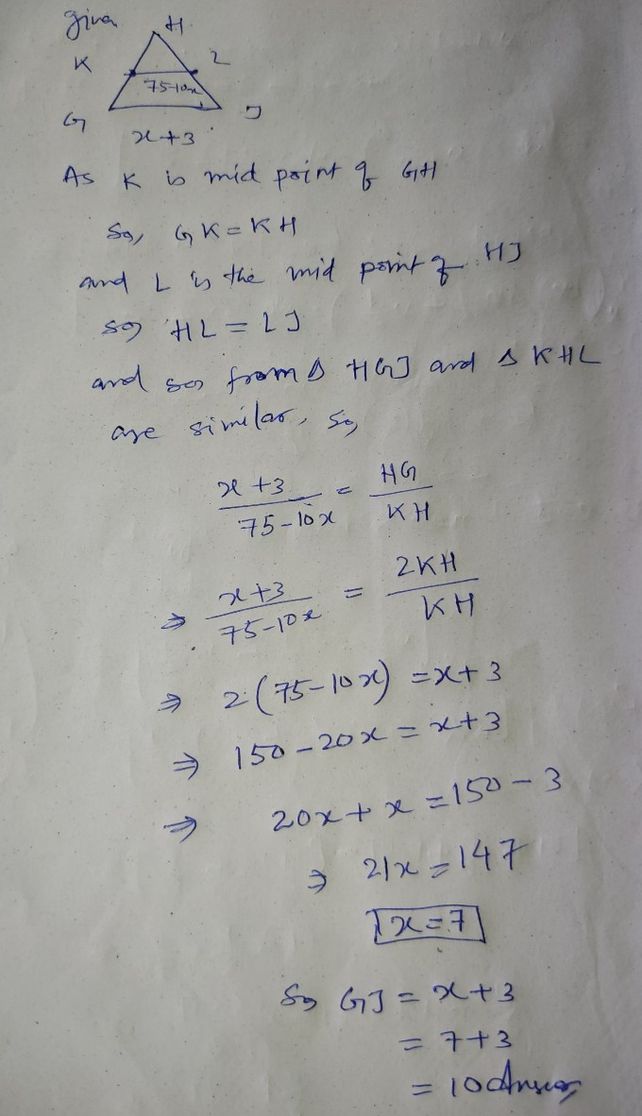 given
H
K L
75-10x
G J
x+3
As K is mid point of GH
So, GK = KH
and L is the mid point of HJ
so HL = LJ
and so from Δ HGJ and Δ KHL
are similar, so,
x+3 / 75-10x = HG / KH
⇒ x+3 / 75-10x = 2KH / KH
⇒ 2(75-10x) = x+3
⇒ 150-20x = x+3
⇒ 20x+x = 150-3
⇒ 21x = 147
x=7
So GJ = x+3
= 7+3
= 10 Answer